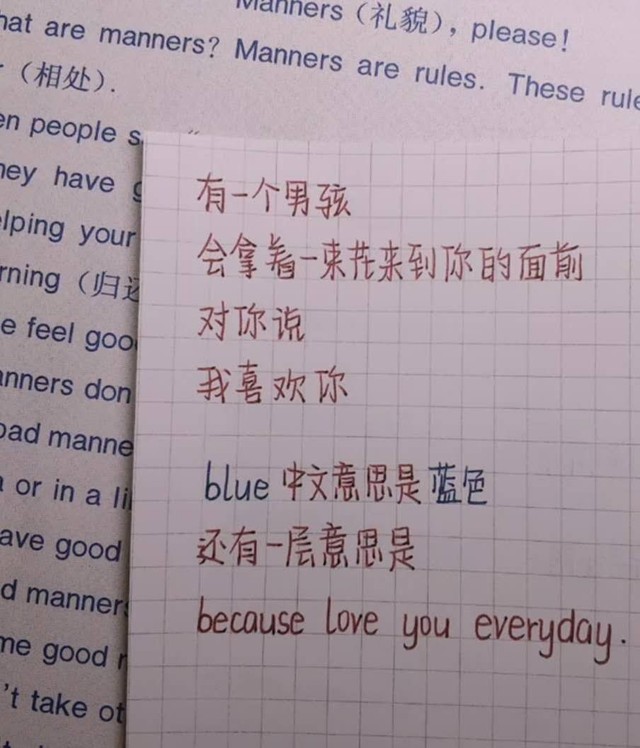 Manners（礼貌），please!
hat are manners? Manners are rules. These rule
（相处）.
en people s
hey have g
elping your
rning（归还
e feel goo
anners don
bad manne
or in a li
ave good
d manners
me good
't take ot
有一个男孩
会拿着一束花来到你的面前
对你说
我喜欢你
blue 中文意思是蓝色
还有一层意思是
because love you everyday.